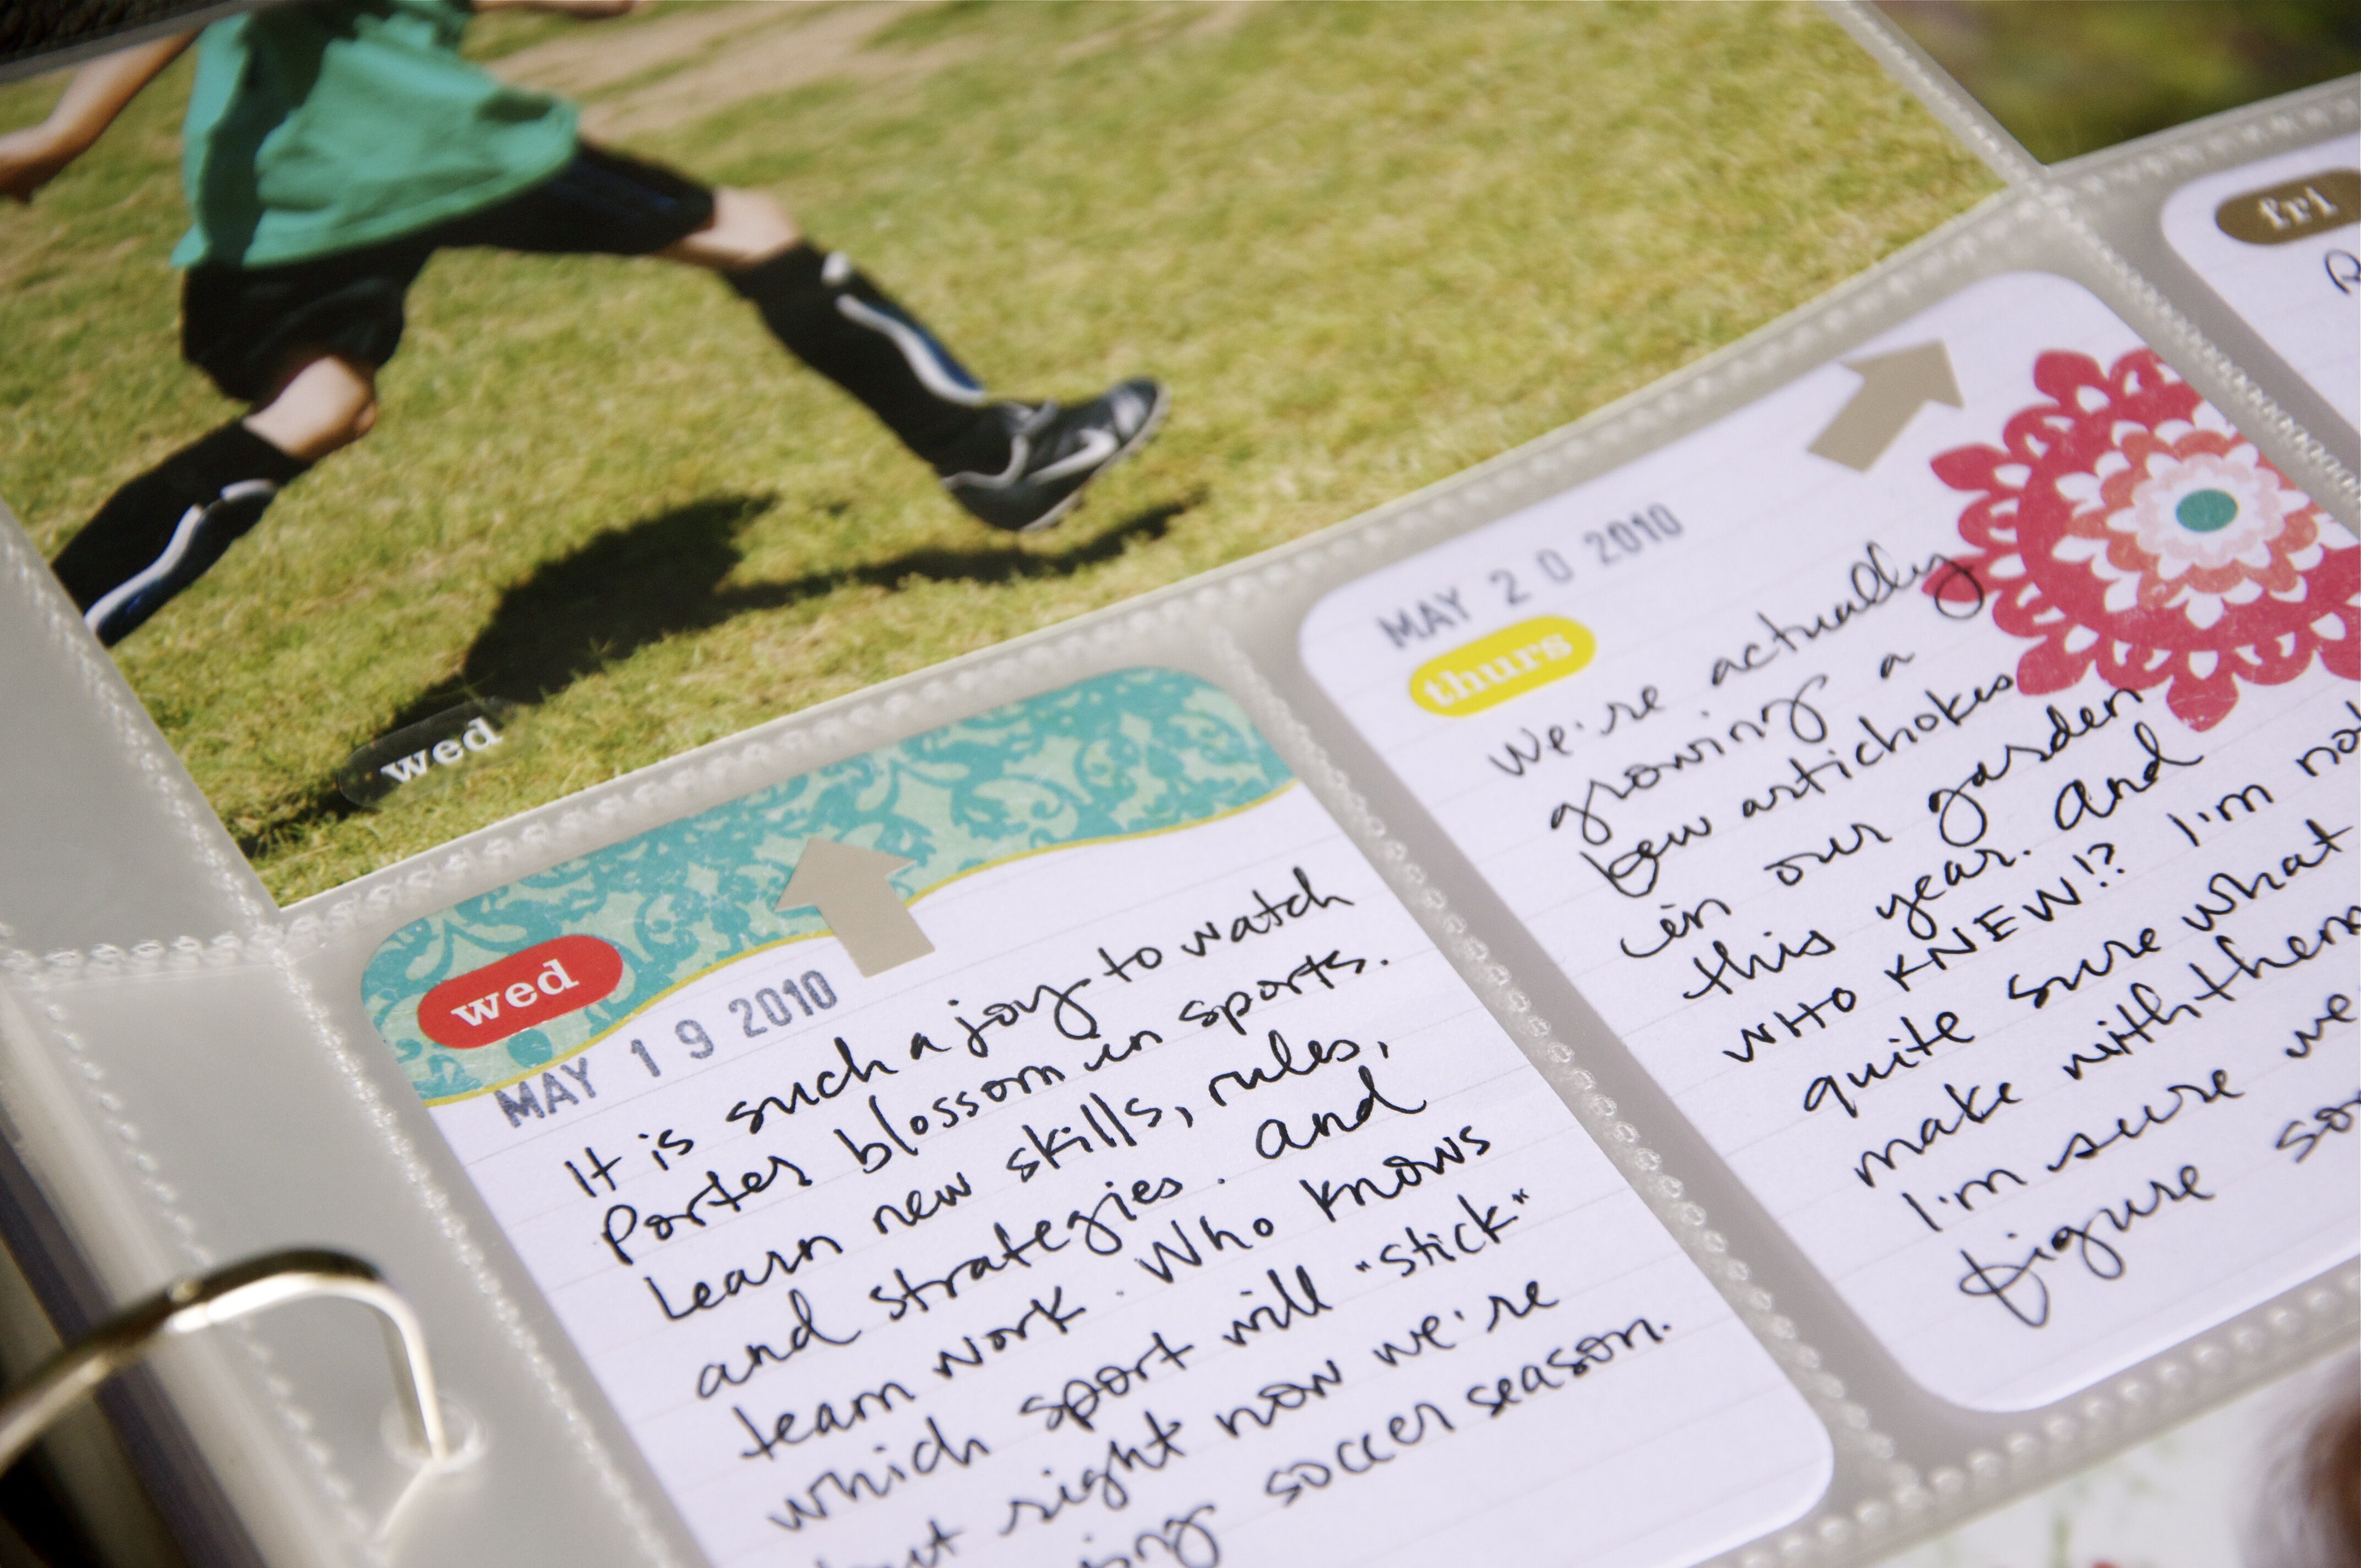 wed
wed
MAY 19 2010
It is such a joy to watch
Porter blossom in sports.
Learn new skills, rules,
and strategies. And
team work. Who knows
which sport will "stick"
but right now we're
soccer season.
MAY 20 2010
thurs
We're actually
growing a
few artichokes
in our garden
this year. And
WHO KNEW!? I'm not
quite sure what
make with them
I'm sure we
figure
fri